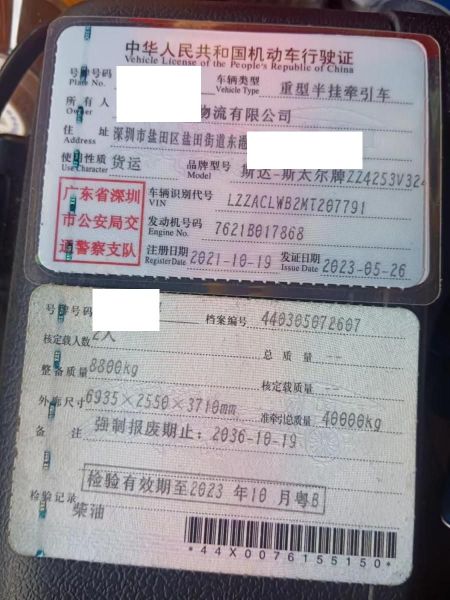 中华人民共和国机动车行驶证
Vehicle License of the People's Republic of China
号牌号码
Plate No.
车辆类型 重型半挂牵引车
Vehicle Type
所有人 物流有限公司
Owner
住址 深圳市盐田区盐田街道东港
Address
使用性质 货运
Use Character
品牌型号 斯达-斯太尔牌ZZ4253V324
Model
广东省深圳
市公安局交
通警察支队
车辆识别代号 LZZACLWB2MT207791
VIN
发动机号码 7621B017868
Engine No.
注册日期 2021-10-19
Register Date
发证日期 2023-05-26
Issue Date
号牌号码
档案编号 440305072607
核定载人数 2人
总质量 --
整备质量 8800kg
核定载质量 --
外廓尺寸 6935×2550×3710mm
准牵引总质量 40000kg
备注 强制报废期止：2036-10-19
检验有效期至2023 年10 月粤B
检验记录
柴油
*44X0076155150*